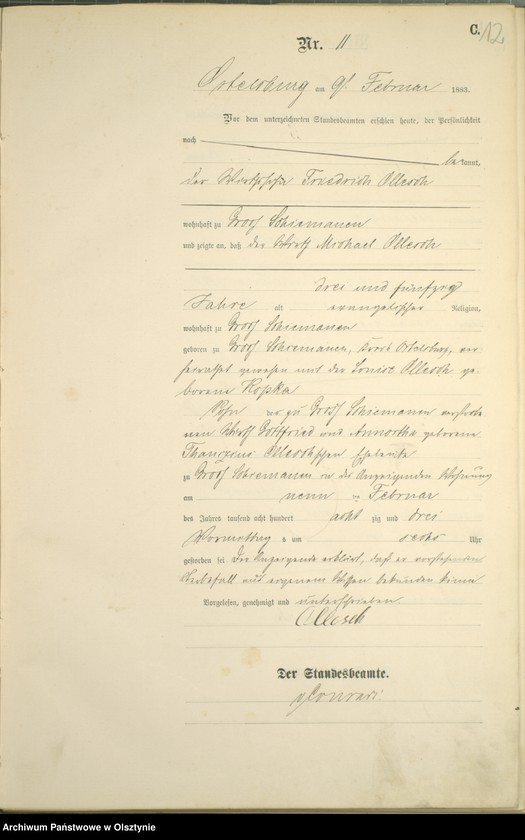 C. 12
Nr. 11
Ortelsburg am 9. Februar 1883.
Vor dem unterzeichneten Standesbeamten erschien heute, der Persönlichkeit
nach
bekannt,
der Friedrich Ollesch
wohnhaft zu Groß Schiemanen
und zeigte an, daß der Wirth Michael Ollesch
drei und fünfzig
Jahre alt evangelischer Religion,
wohnhaft zu Groß Schiemanen
geboren zu Groß Schiemanen, Kreis Ortelsburg, ver
heirathet gewesen mit der Louise Ollesch ge
borene Kopka
Sohn der zu Groß Schiemanen verstorbe
nen Wirth Gottfried und geborene
Ollesch'schen Eheleute
zu Groß Schiemanen in des Anzeigenden Wohnung
am neun ten Februar
des Jahres tausend acht hundert acht zig und drei
Vormittag s um sechs Uhr
gestorben sei. Der Anzeigende erklärt, daß er vorstehenden
Sterbefall aus eigenem Wissen bekunden könne
Vorgelesen, genehmigt und unterschrieben.
Ollesch
Der Standesbeamte.
Archiwum Państwowe w Olsztynie